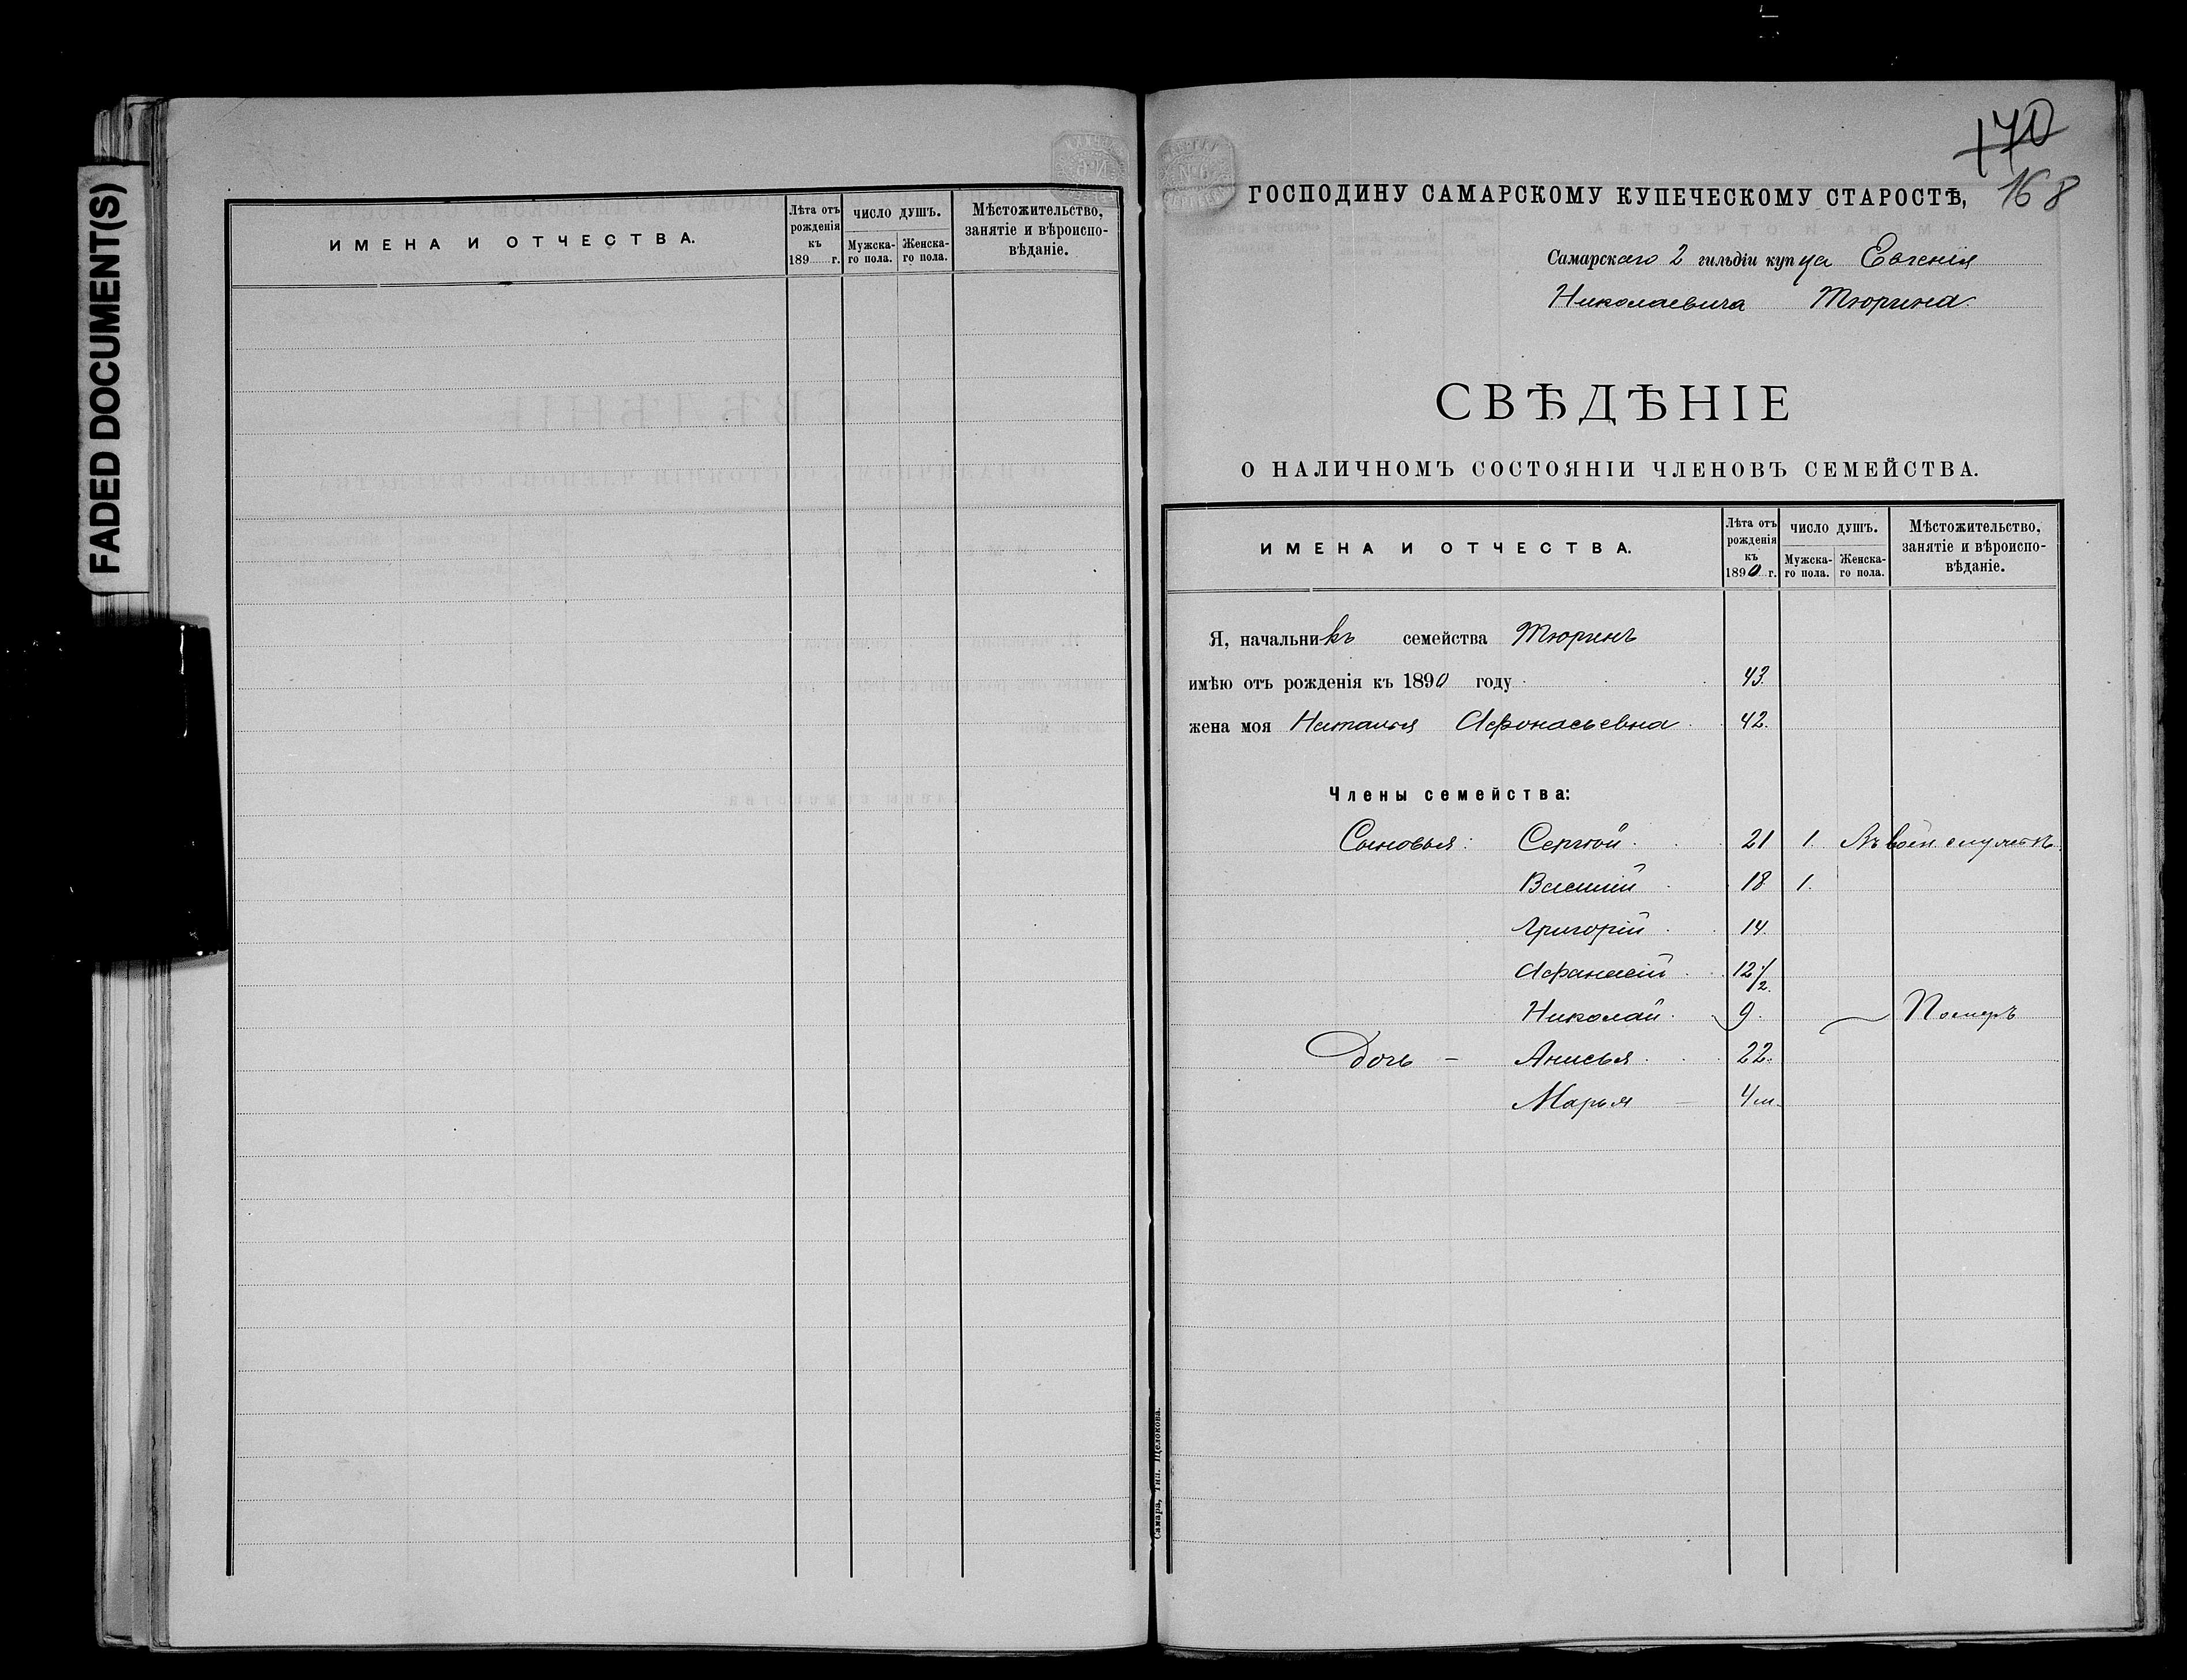 FADED DOCUMENT(S)
ИМЕНА И ОТЧЕСТВА.
Лѣта отъ рожденія къ 189 г.
ЧИСЛО ДУШЪ.
Мужска-го пола.
Женска-го пола.
Мѣстожительство, занятіе и вѣроиспо-вѣданіе.
170
168
ГОСПОДИНУ САМАРСКОМУ КУПЕЧЕСКОМУ СТАРОСТѢ,
Самарскаго 2 гильдіи купца Евгенія
Николаевича Тюрина
СВѢДѢНІЕ
О НАЛИЧНОМЪ СОСТОЯНІИ ЧЛЕНОВЪ СЕМЕЙСТВА.
ИМЕНА И ОТЧЕСТВА.
Лѣта отъ рожденія къ 1890 г.
ЧИСЛО ДУШЪ.
Мужска-го пола.
Женска-го пола.
Мѣстожительство, занятіе и вѣроиспо-вѣданіе.
Я, начальникъ семейства Тюринъ
имѣю отъ рожденія къ 1890 году 43.
жена моя Наталья Афонасьевна 42.
Члены семейства:
Сыновья: Сергѣй 21 1. Въ воен. службѣ
Василій 18 1.
Григорій 14.
Афанасій 12 1/2.
Николай 9. Померъ
Дочь – Анисья 22.
Марья – 4 м.
Самара, Тип. Щелокова.